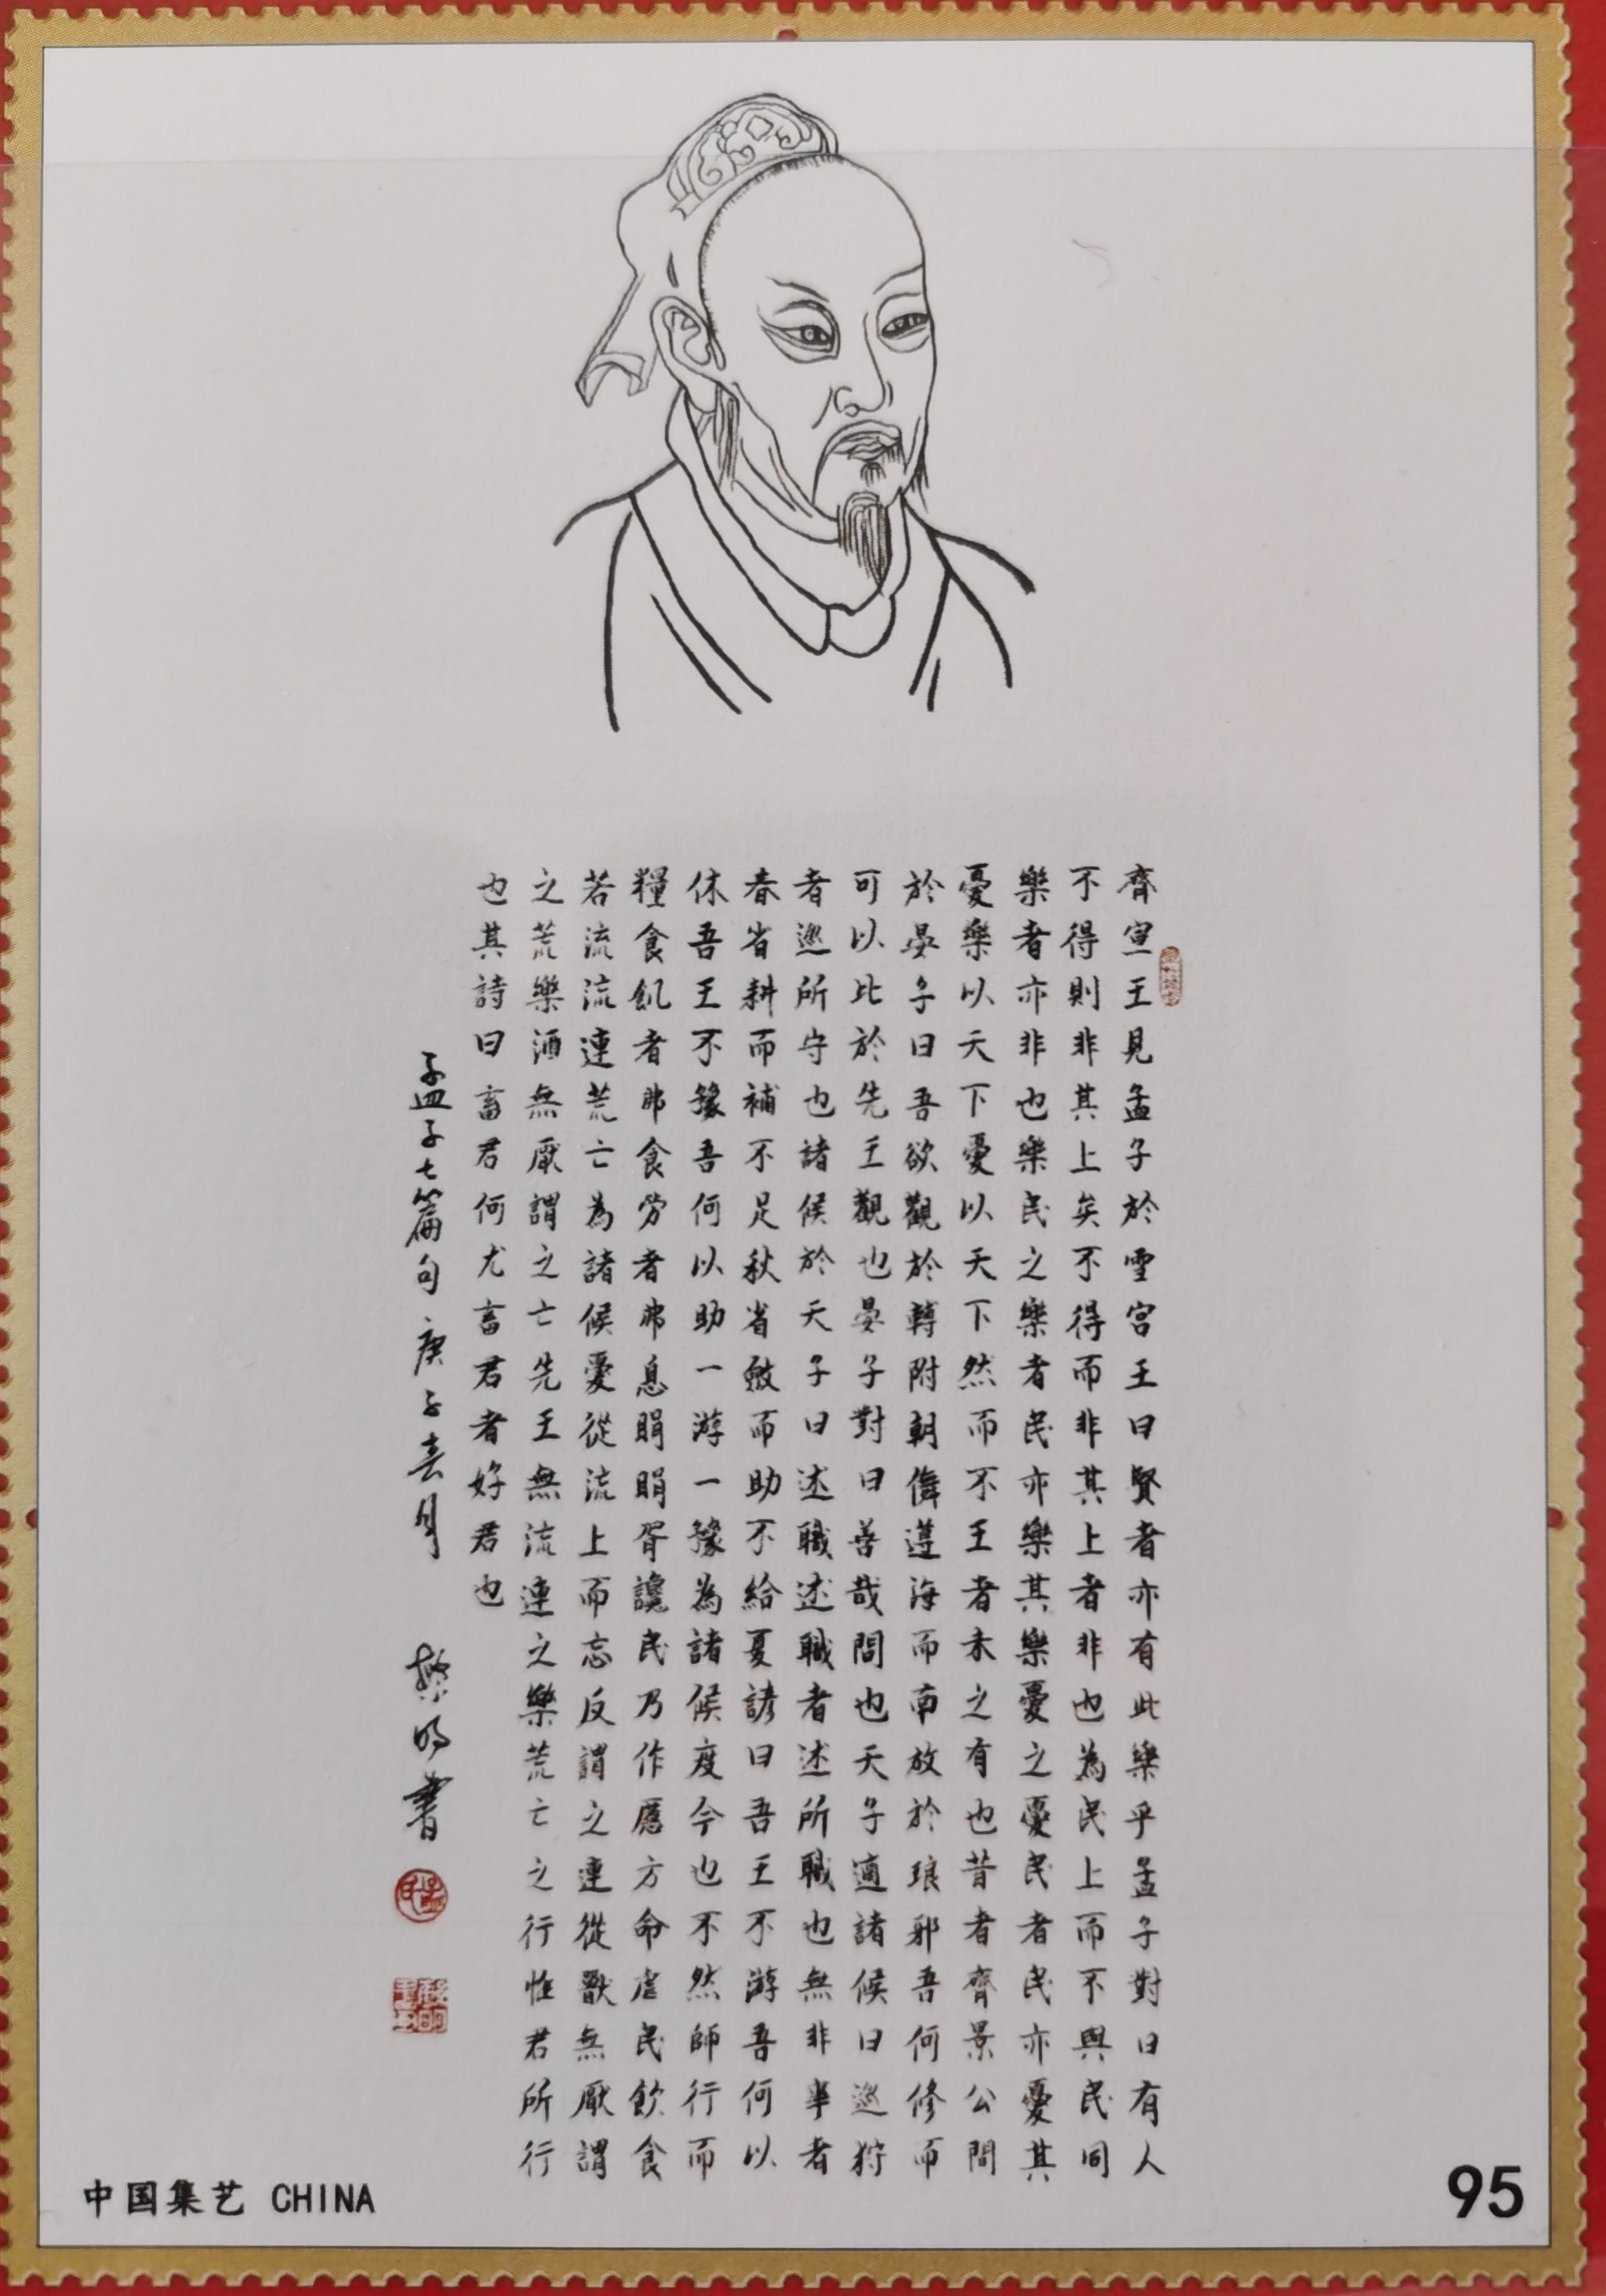 齊宣王見孟子於雪宮王曰賢者亦有此樂乎孟子對曰有人
不得則非其上矣不得而非其上者非也為民上而不與民同
樂者亦非也樂民之樂者民亦樂其樂憂之憂民者民亦憂其
憂樂以天下憂以天下然而不王者未之有也昔者齊景公問
於晏子曰吾欲觀於轉附朝儛遵海而南放於琅邪吾何修而
可以比於先王觀也晏子對曰善哉問也天子適諸候曰巡狩
者巡所守也諸候於天子曰述職述職者述所職也無非事者
春省耕而補不足秋省斂而助不給夏諺曰吾王不游吾何以
休吾王不豫吾何以助一游一豫為諸候度今也不然師行而
糧食飢者弗食勞者弗息睊睊胥讒民乃作慝方命虐民飲食
若流流連荒亡為諸候憂從流上而忘反謂之連從獸無厭謂
之荒樂酒無厭謂之亡先王無流連之樂荒亡之行惟君所行
也其詩曰畜君何尤畜君者好君也
孟子七篇句 庚子春月 明書
中国集艺 CHINA
95